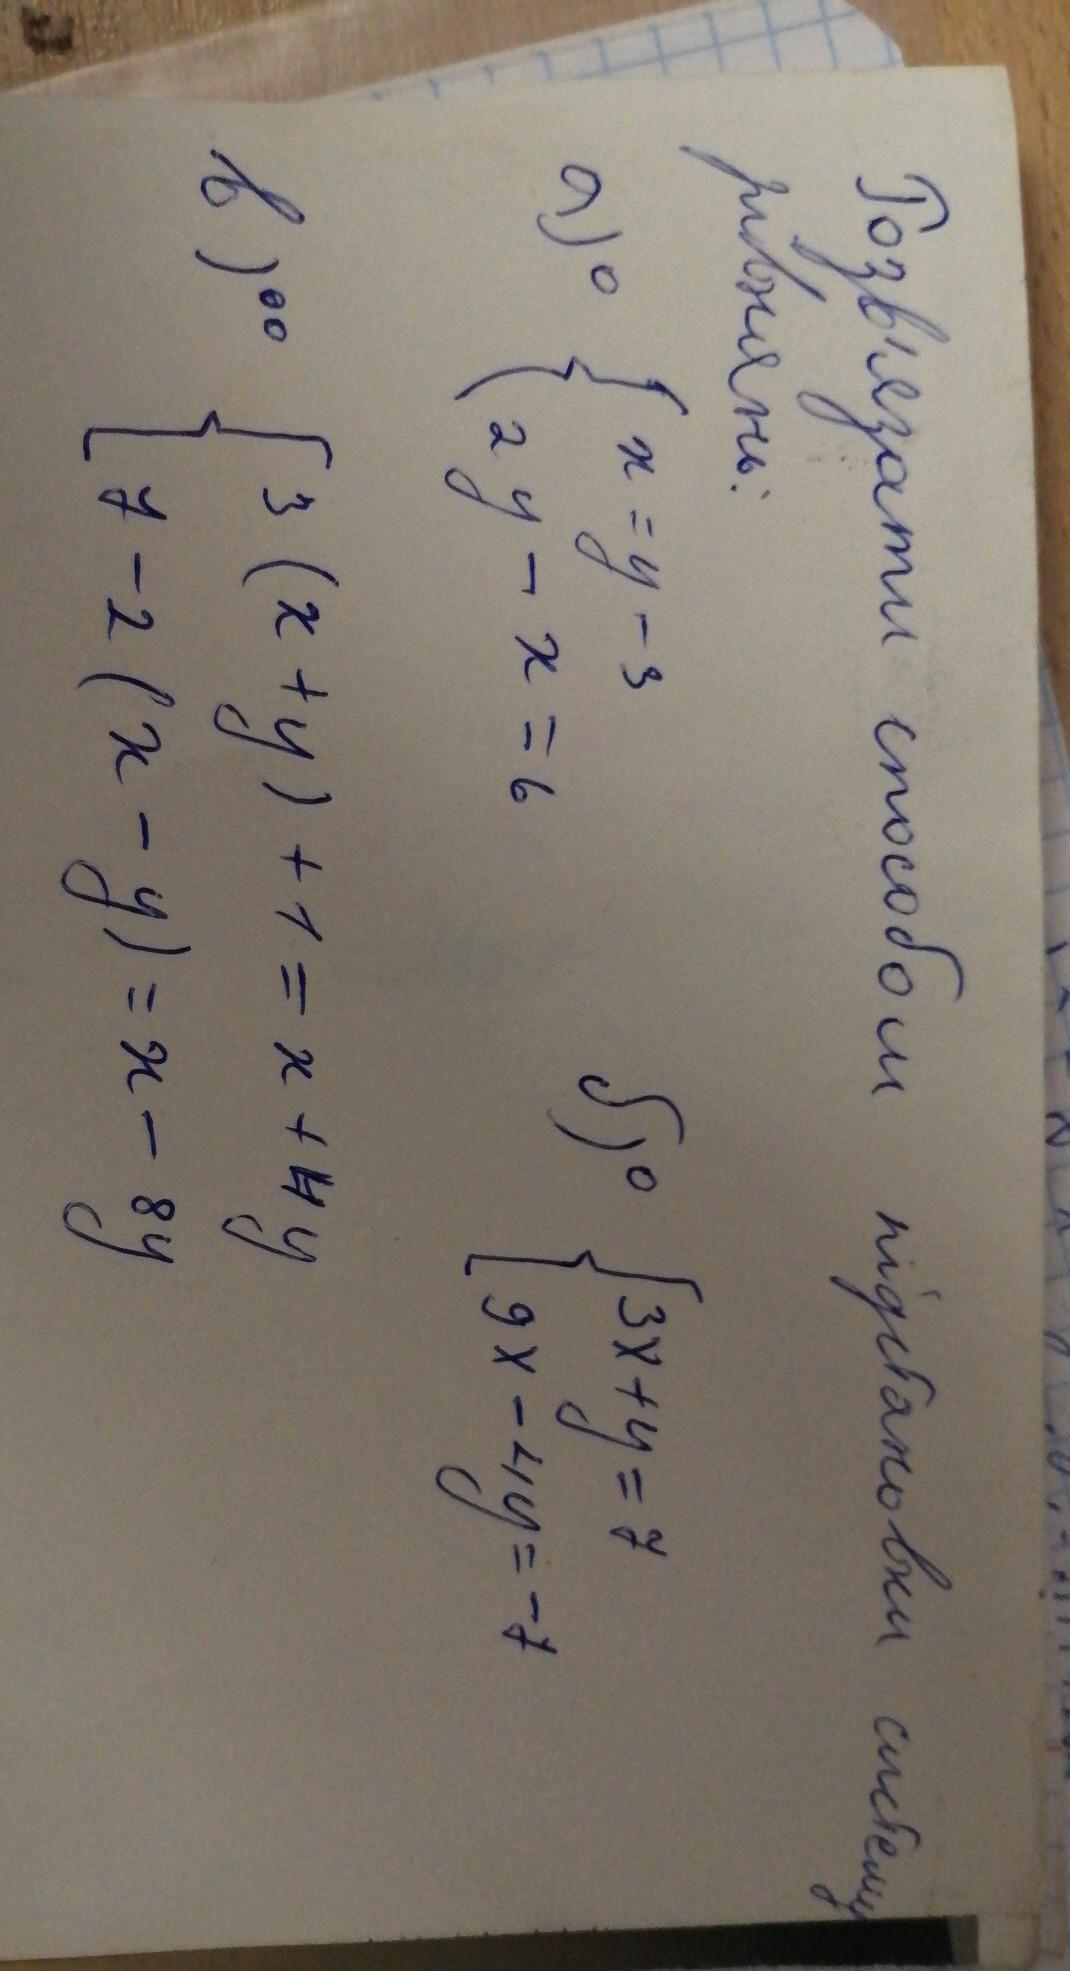 Розв'язати способом підстановки систему
рівнянь:
а)° { x = y - 3
2y - x = 6
б)° { 3x + y = 7
9x - 4y = -7
в)°° { 3(x + y) + 1 = x + 4y
7 - 2(x - y) = x - 8y